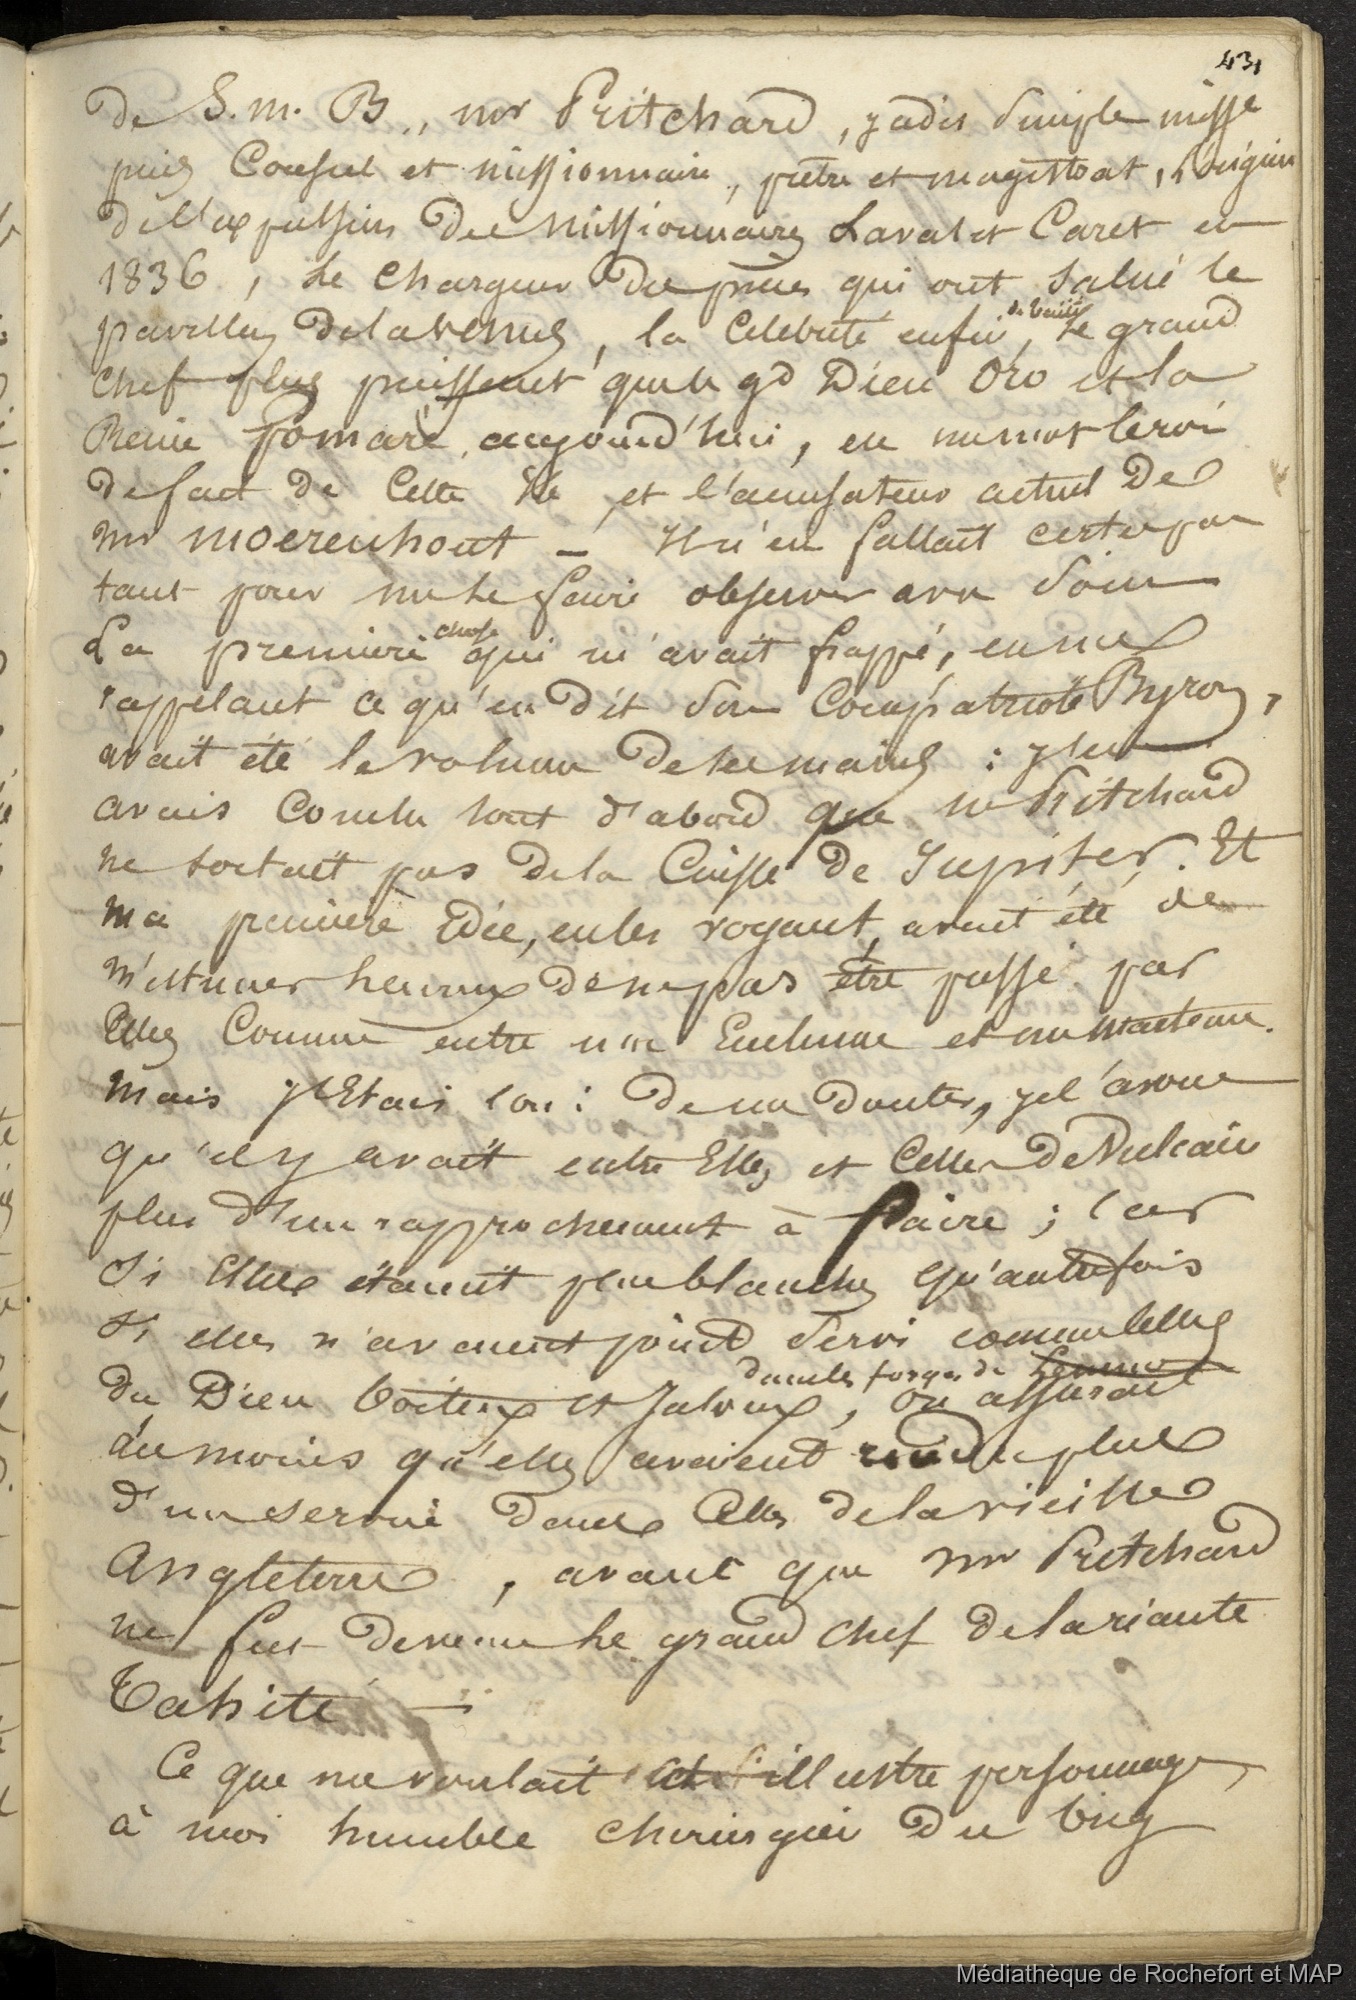 431
de S. m. B., mr Pritchard, jadis simple misse
puis Consul et missionnaire, prêtre et magistrat, l'origine
de l'expulsion des missionnaires Laval et Caret en
1836, le chargeur des prises qui ont salué le
pavillon de la venus, la Célébrité enfin de Taïti, le grand
chef plus puissant que le gd Dieu Oro et la
Reine Pomaré aujourd'hui, en un mot le roi
de fait de cette île et l'accusateur actuel de
mr moerenhout — Il n'en fallait certes pas
tant pour me le faire observer avec soin
La première chose qui m'avait frappé, en me
rappelant ce qu'en dit son Compatriote Byron,
avait été le volume de ses mains : j'en
avais conclu tout d'abord que mr Pritchard
ne sortait pas de la Cuisse de Jupiter. Et
ma première idée, en les voyant, avait été de
m'estimer heureux de ne pas être passé par
Elles Comme entre une Enclume et un marteau.
mais j'Etais loin de me douter, je l'avoue
qu'il y avait entre Elles et Celles de Vulcain
plus d'un rapprochement à faire ; Car
si Elles étaient plus blanches qu'autrefois
si elles n'avaient point servi comme celles
du Dieu boiteux et Jaloux, dans les forges de Lemnos on assurait
du moins qu'elles avaient rendu plus
d'un service dans Celles de la vieille
Angleterre, avant que mr Pritchard
ne fut devenu le grand chef de la riante
Tahiti —
Ce que me voulait l'illustre personnage
à moi humble chirurgien du brig
Médiathèque de Rochefort et MAP